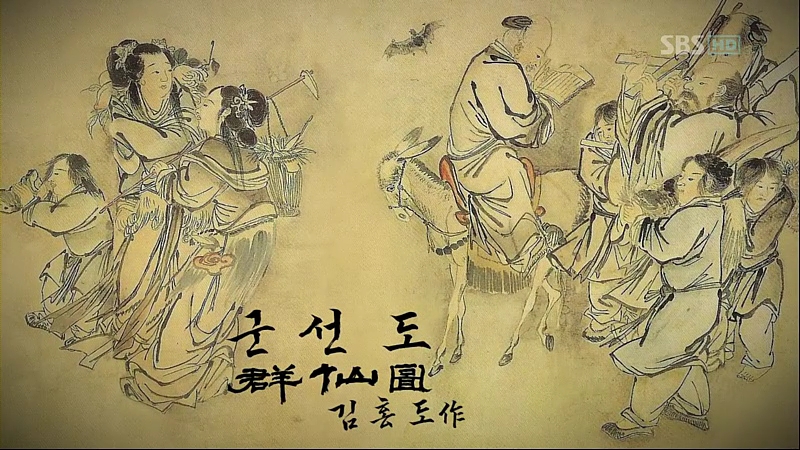 SBS HD
군선도
群仙圖
김홍도作